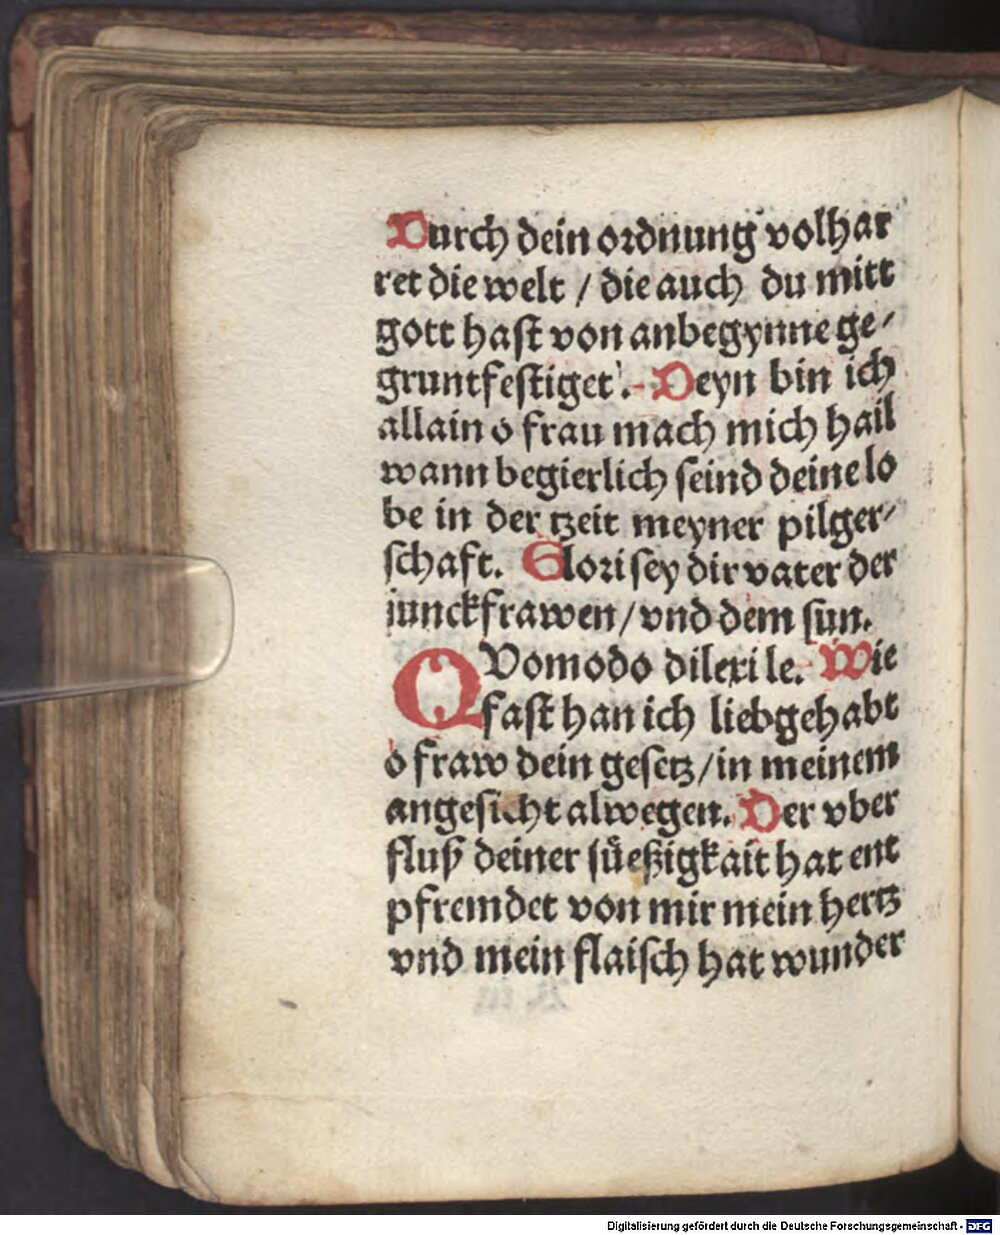 Durch dein ordnung volhar
ret die welt / die auch du mitt
gott haſt von anbegynne ge⸗
gruntfeſtiget . Deyn bin ich
allain o frau mach mich hail
wann begierlich ſeind deine lo
be in der tzeit meyner pilger⸗
ſchaft. Glori ſey dir vater der
iunckfrawen / vnd dem ſun.
QVomodo dilexi le. Wie
faſt han ich liebgehabt
o fraw dein geſetz / in meinem
angeſicht alwegen. Der vber
fluſz deiner ſuͤeßigkait hat ent
pfremdet von mir mein hertz
vnd mein flaiſch hat wunder
Digitalisierung gefördert durch die Deutsche Forschungsgemeinschaft - DFG